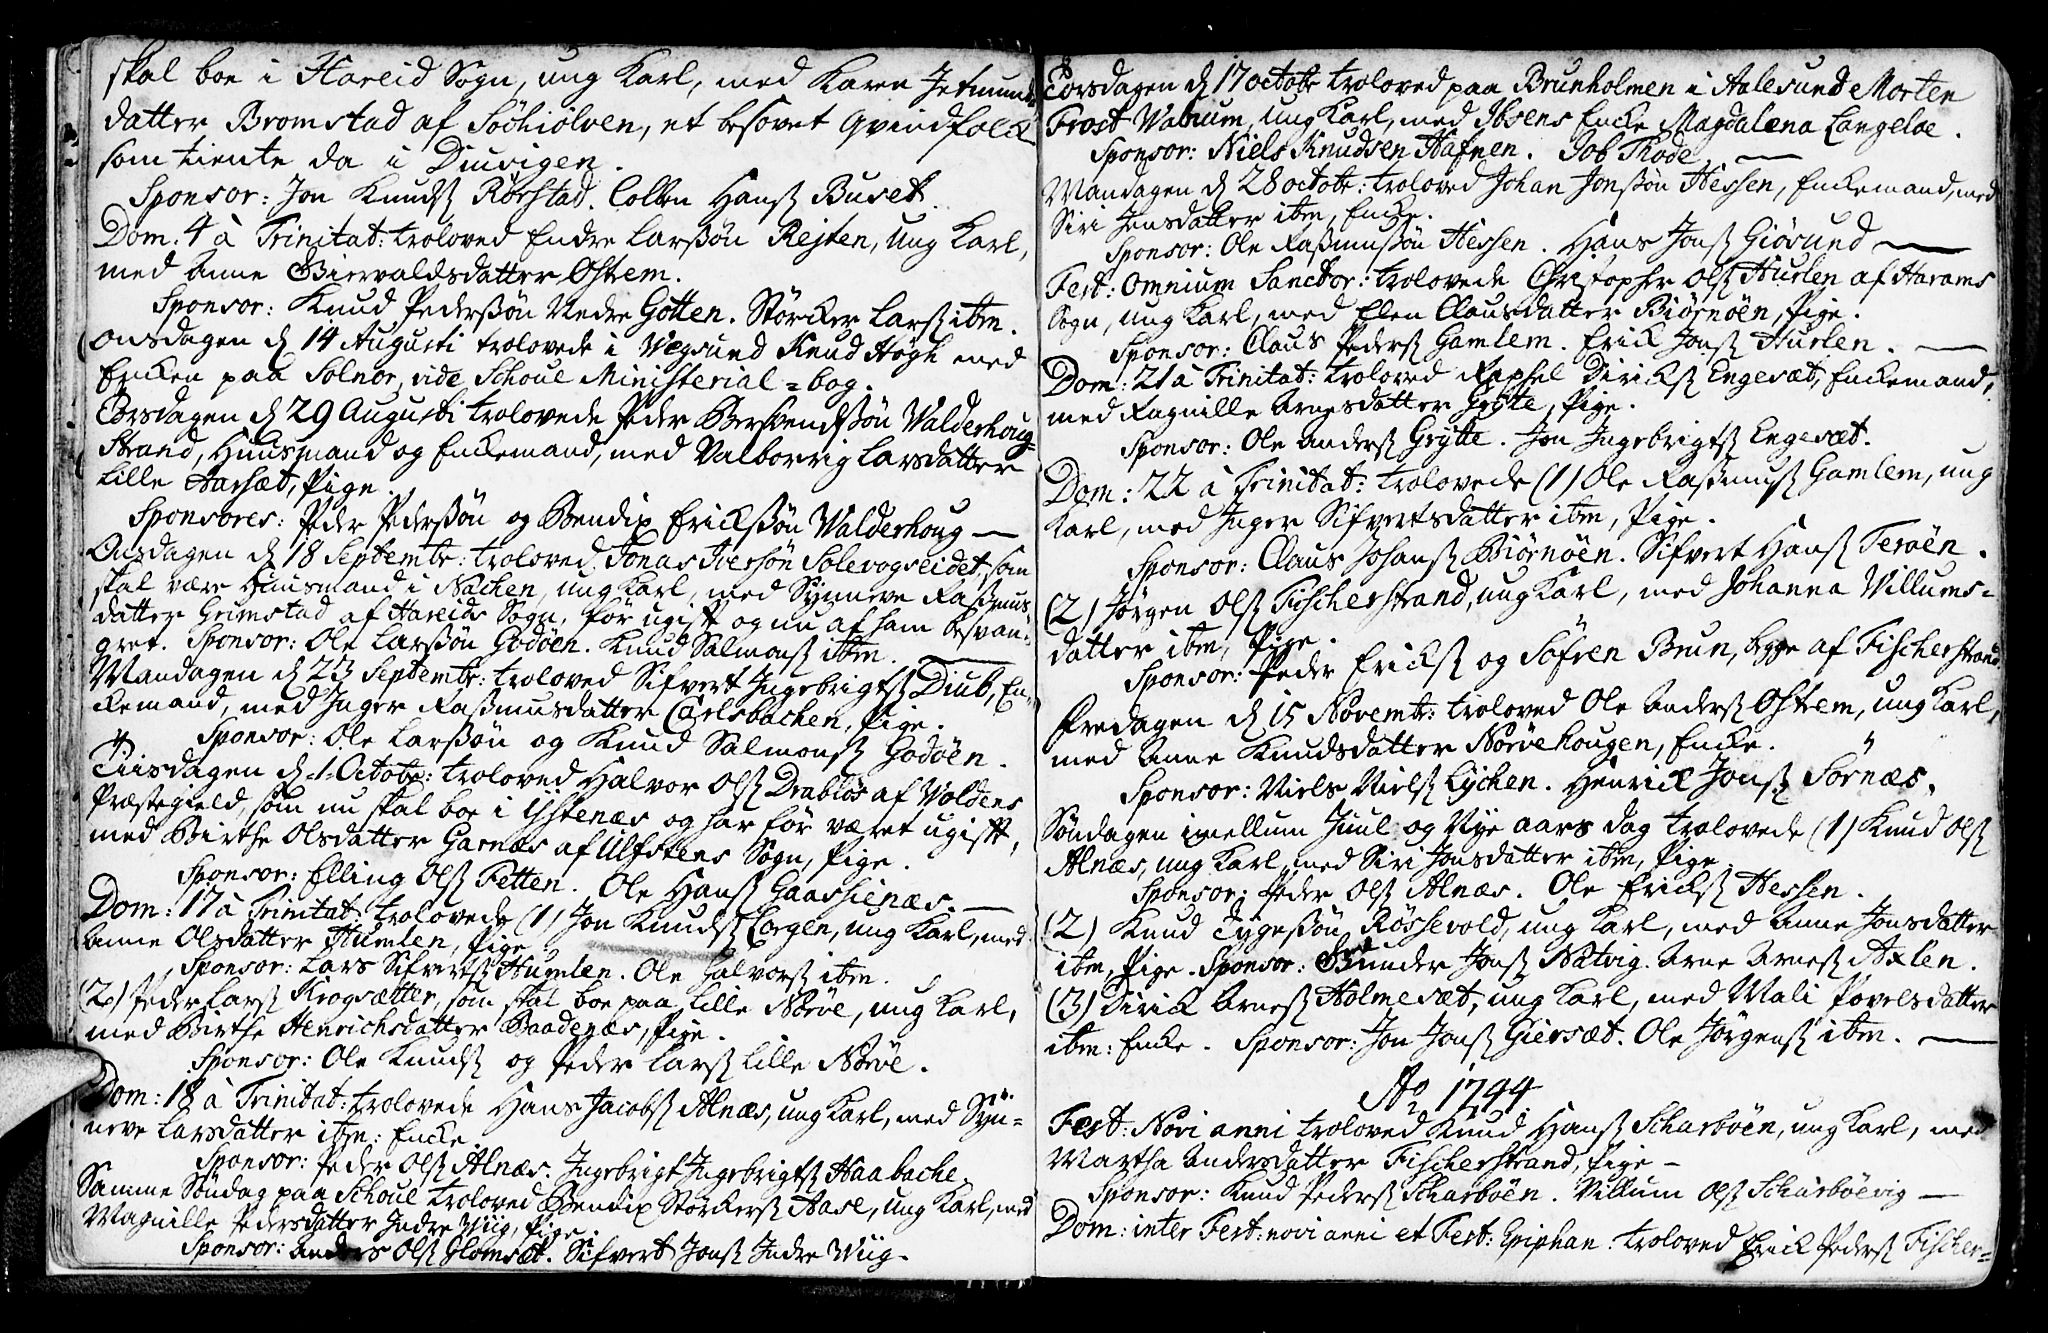 skal boe i Hareid Sogn, ung Karl, med Karen Jetmunds
datter Bromstad af Søchiølven, et besovet Qvindfolck
som tiente da i Diuvigen.
Sponsor: Jon Knuds Rørstad. Colben Hans Buset.
Dom. 4 à Trinitat: troloved Endre Larssøn Rejten, ung Karl,
med Anne Giervaldsdatter Ostrem.
Sponsor: Knud Pederssøn Nedre Gotten. Størcker Lars ibm.
Onsdagen d 14 Augusti trolovede i Vegsund Knud Høgh med
Encken paa Solnor, vide Schoue Ministerial=bog.
Torsdagen d 29 Augusti trolovede Peder Berhendssøn Valderhoug
Strand, Huusmand og Enckemand, med Valborrig Larsdatter
Lille Aarsæt, Pige.
Sponsores: Peder Pederssøn og Bendix Erickssøn Valderhoug —
Onsdagen d 18 Septembr: troloved Jonas Iverssøn Solevogseidet, som
skal være Huusmand i Nachen, ung Karl, med Synneve Rasmus
datter Grimstad af Hareids Sogn, før ugift og nu af ham besvan=
gret. Sponsor: Ole Larssøn Godøen. Knud Salmons ibm. —
Mandagen d 23 Septembr: troloved Sifvert Ingebrigts Diub, En=
kemand, med Inger Rasmusdatter Carlsbachen, Pige.
Sponsor: Ole Larssøn og Knud Salmons Godøen.
Tiisdagen d 1 Octobr: troloved Halvor Ols Drabløs af Voldens
Præstegield, som nu skal boe i Ystenæs og har før været ugift,
med Birthe Olsdatter Garnæs af Ulfstens Sogn, Pige.
Sponsor: Elling Ols Fetten. Ole Hans Gaassienæs. —
Dom: 17 à Trinitat: trolovede (1) Jon Knuds Corgen, ung Karl, med
Anne Olsdatter Humlen, Pige
Sponsor: Lars Sifverts Humlen. Ole Halvors ibm.
(2) Peder Lars Krogsætter, som skal boe paa Lille Nørve, ung Karl,
med Birthe Henrichsdatter Baadenæs, Pige.
Sponsor: Ole Knuds og Peder Lars Lille Nørve.
Dom: 18 à Trinitat: trolovede Hans Jacobs Alnæs, ung Karl, med Syn=
neve Larsdatter ibm: Encke.
Sponsor: Peder Ols Alnæs. Ingebrigt Ingebrigts Haabache.
Samme Søndag paa Schoue troloved Bendix Størkers Aase, ung Karl, med
Magnille Pedersdatter Indre Viig, Pige.
Sponsor: Anders Ols Glomsæt. Sifvert Jons Indre Viig.
Torsdagen d 17 octobr troloved paa Brunholmen i Aalesund Morten
Frost Vatrum, ung Karl, med Ibsens Encke Magdalena Langeloe.
Sponsor: Niels Knudsen Hafnen. Job Thode. —
Mandagen d 28 octobr: troloved Johan Jonssøn Hessen, Enckemand, med
Siri Jensdatter ibm, Encke.
Sponsor: Ole Rasmussøn Hessen. Hans Jons Giøsund —
Fest: Omnium Sanctor: trolovede Christopher Ols Hurlen af Harams
Sogn, ung Karl, med Elen Clausdatter Biørnøen, Pige.
Sponsor: Claus Peders Gamlem. Erick Jons Hurlen. —
Dom: 21 à Trinitat: troloved Raphel Diricks Engesæt, Enckemand,
med Ragnille Arnesdatter Grytte, Pige.
Sponsor: Ole Anders Grytte. Jon Ingebrigts Engesæt.
Dom: 22 à Trinitat: trolovede (1) Ole Rasmus Gamlem, ung
Karl, med Inger Sifvertsdatter ibm, Pige.
Sponsor: Claus Johans Biørnøen. Sifvert Hans Terøen.
(2) Jørgen Ols Fischerstrand, ung Karl, med Johanna Villums=
datter ibm, Pige.
Sponsor: Peder Ericks og Søfren Brun, begge af Fischerstrand
Fredagen d 15 Novembr: troloved Ole Anders Ostrem, ung Karl,
med Anne Knudsdatter Nørvehougen, Encke.
Sponsor: Niels Niels Lychen. Henrick Jons Sornæs.
Søndagen imellum Juul og Nye aars dag trolovede (1) Knud Ols
Alnæs, ung Karl, med Siri Jonsdatter ibm, Pige.
Sponsor: Peder Ols Alnæs. Ole Ericks Hessen.
(2) Knud Tygessøn Røssevold, ung Karl, med Anne Jonsdatter
ibm, Pige. Sponsor: Gunder Jons Natvig. Arne Arnes Axlen.
(3) Dirick Arnes Holmesæt, ung Karl, med Mali Povelsdatter
ibm: Encke. Sponsor: Jon Jons Giersæt. Ole Jørgens ibm. —
Ao 1744
Fest: Novi anni troloved Knud Hans Scharbøen, ung Karl, med
Martha Andersdatter Fischerstrand, Pige —
Sponsor: Knud Peders Scharbøen. Villum Ols Scharbøevig —
Dom: inter Fest: novi anni et Fest: Epiphan: troloved Erick Peders Fischer=